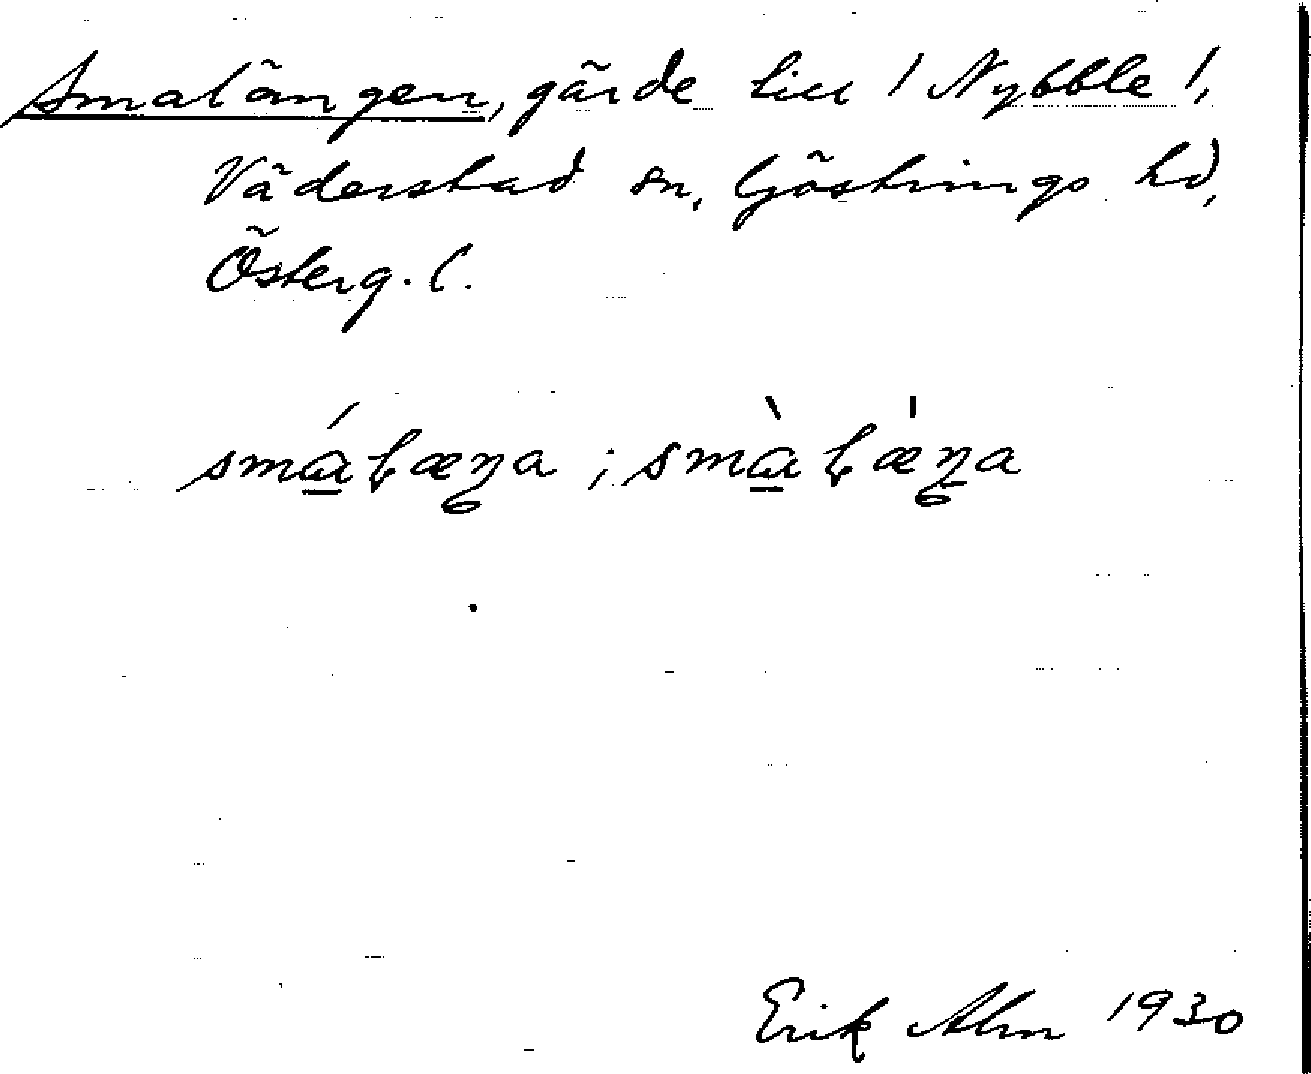 Smalängen, gärde till /Nybble/,
Väderstad sn, Göstrings hd,
Österg. l.
smálæŋa ; smàlæ̍ŋa
Erik Alm 1930